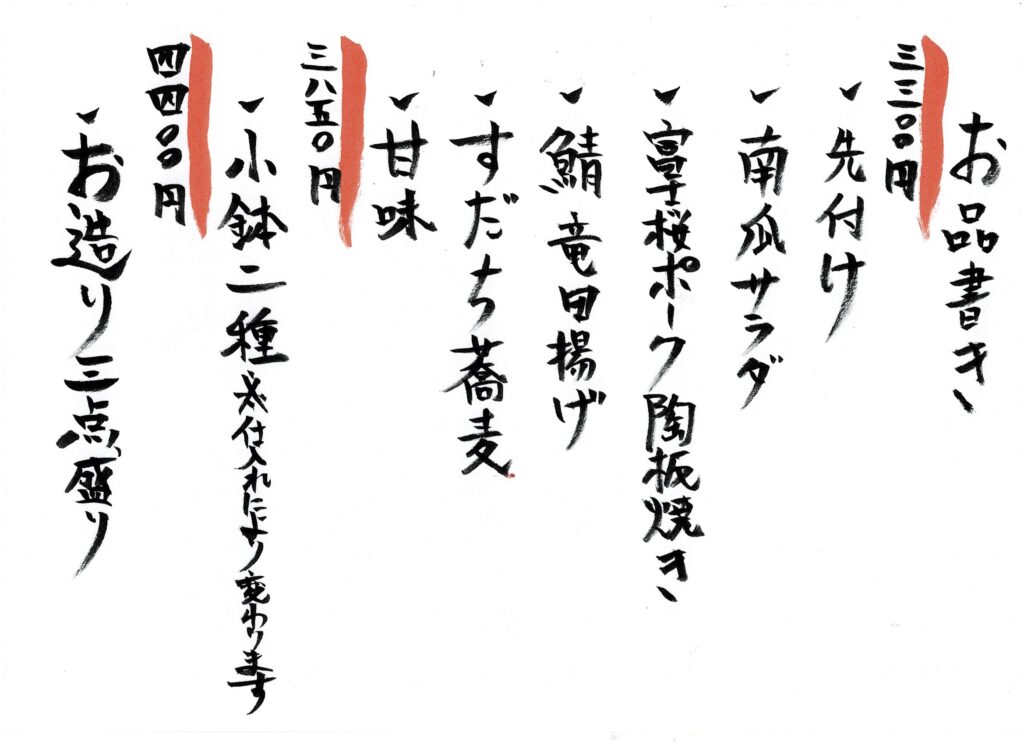 お品書き
三三〇〇円
先付け
南瓜サラダ
富士桜ポーク陶板焼き
鯖竜田揚げ
すだち蕎麦
甘味
三八五〇円
小鉢二種 ※仕入れにより変わります
四四〇〇円
お造り三点盛り